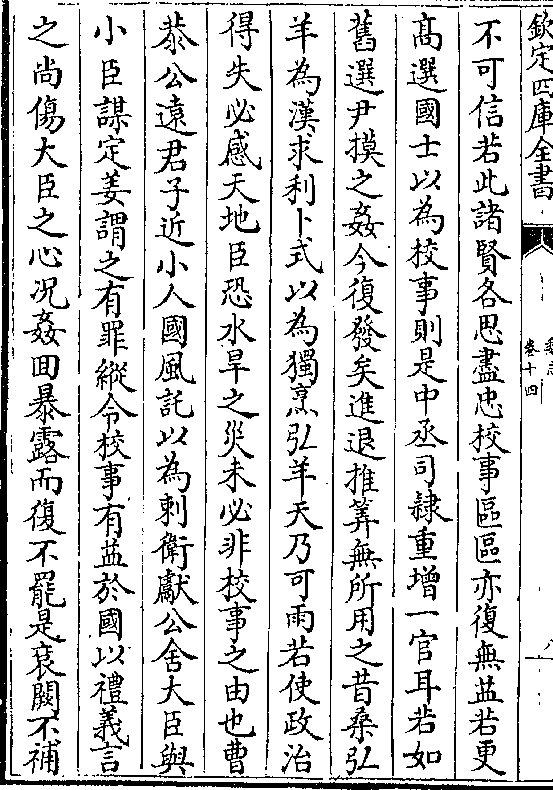 欽定四庫全書
魏志
卷十四
不可信若此諸賢各思盡忠校事區區亦復無益若更
髙選國士以為校事則是中丞司隷重增一官耳若如
舊選尹摸之姦今復發矣進退推筭無所用之昔桑弘
羊為漢求利卜式以為獨烹弘羊天乃可雨若使政治
得失必感天地臣恐水旱之災未必非校事之由也曹
恭公逺君子近小人國風託以為刺衛獻公舍大臣與
小臣謀定姜謂之有罪縱令校事有益於國以禮義言
之尚傷大臣之心况姦囬暴露而復不罷是衮闕不補